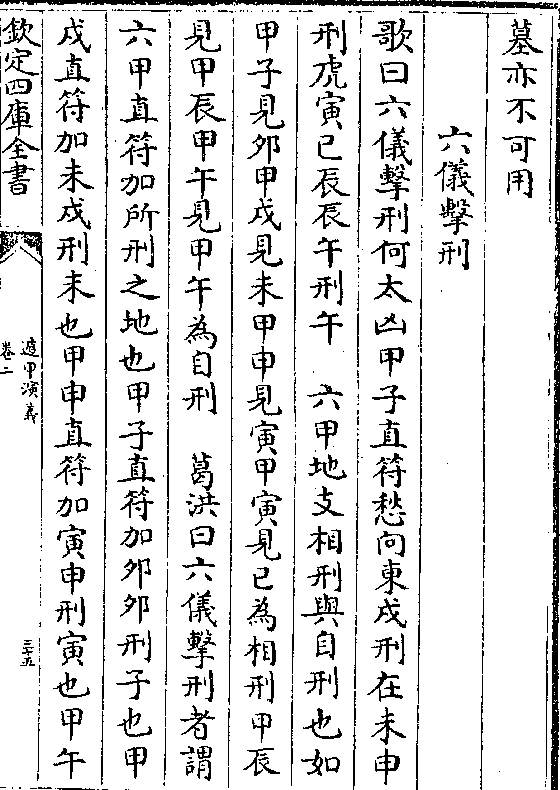 墓亦不可用
六儀擊刑
歌曰六儀擊刑何太凶甲子直符愁向東戌刑在未申
刑虎寅巳辰辰午刑午　六甲地支相刑與自刑也如
甲子見夘甲戌見未甲申見寅甲寅見巳為相刑甲辰
見甲辰甲午見甲午為自刑　葛洪曰六儀擊刑者謂
六甲直符加所刑之地也甲子直符加夘夘刑子也甲
戌直符加未戌刑未也甲申直符加寅申刑寅也甲午
欽定四庫全書
遁甲演義
卷二
三十五